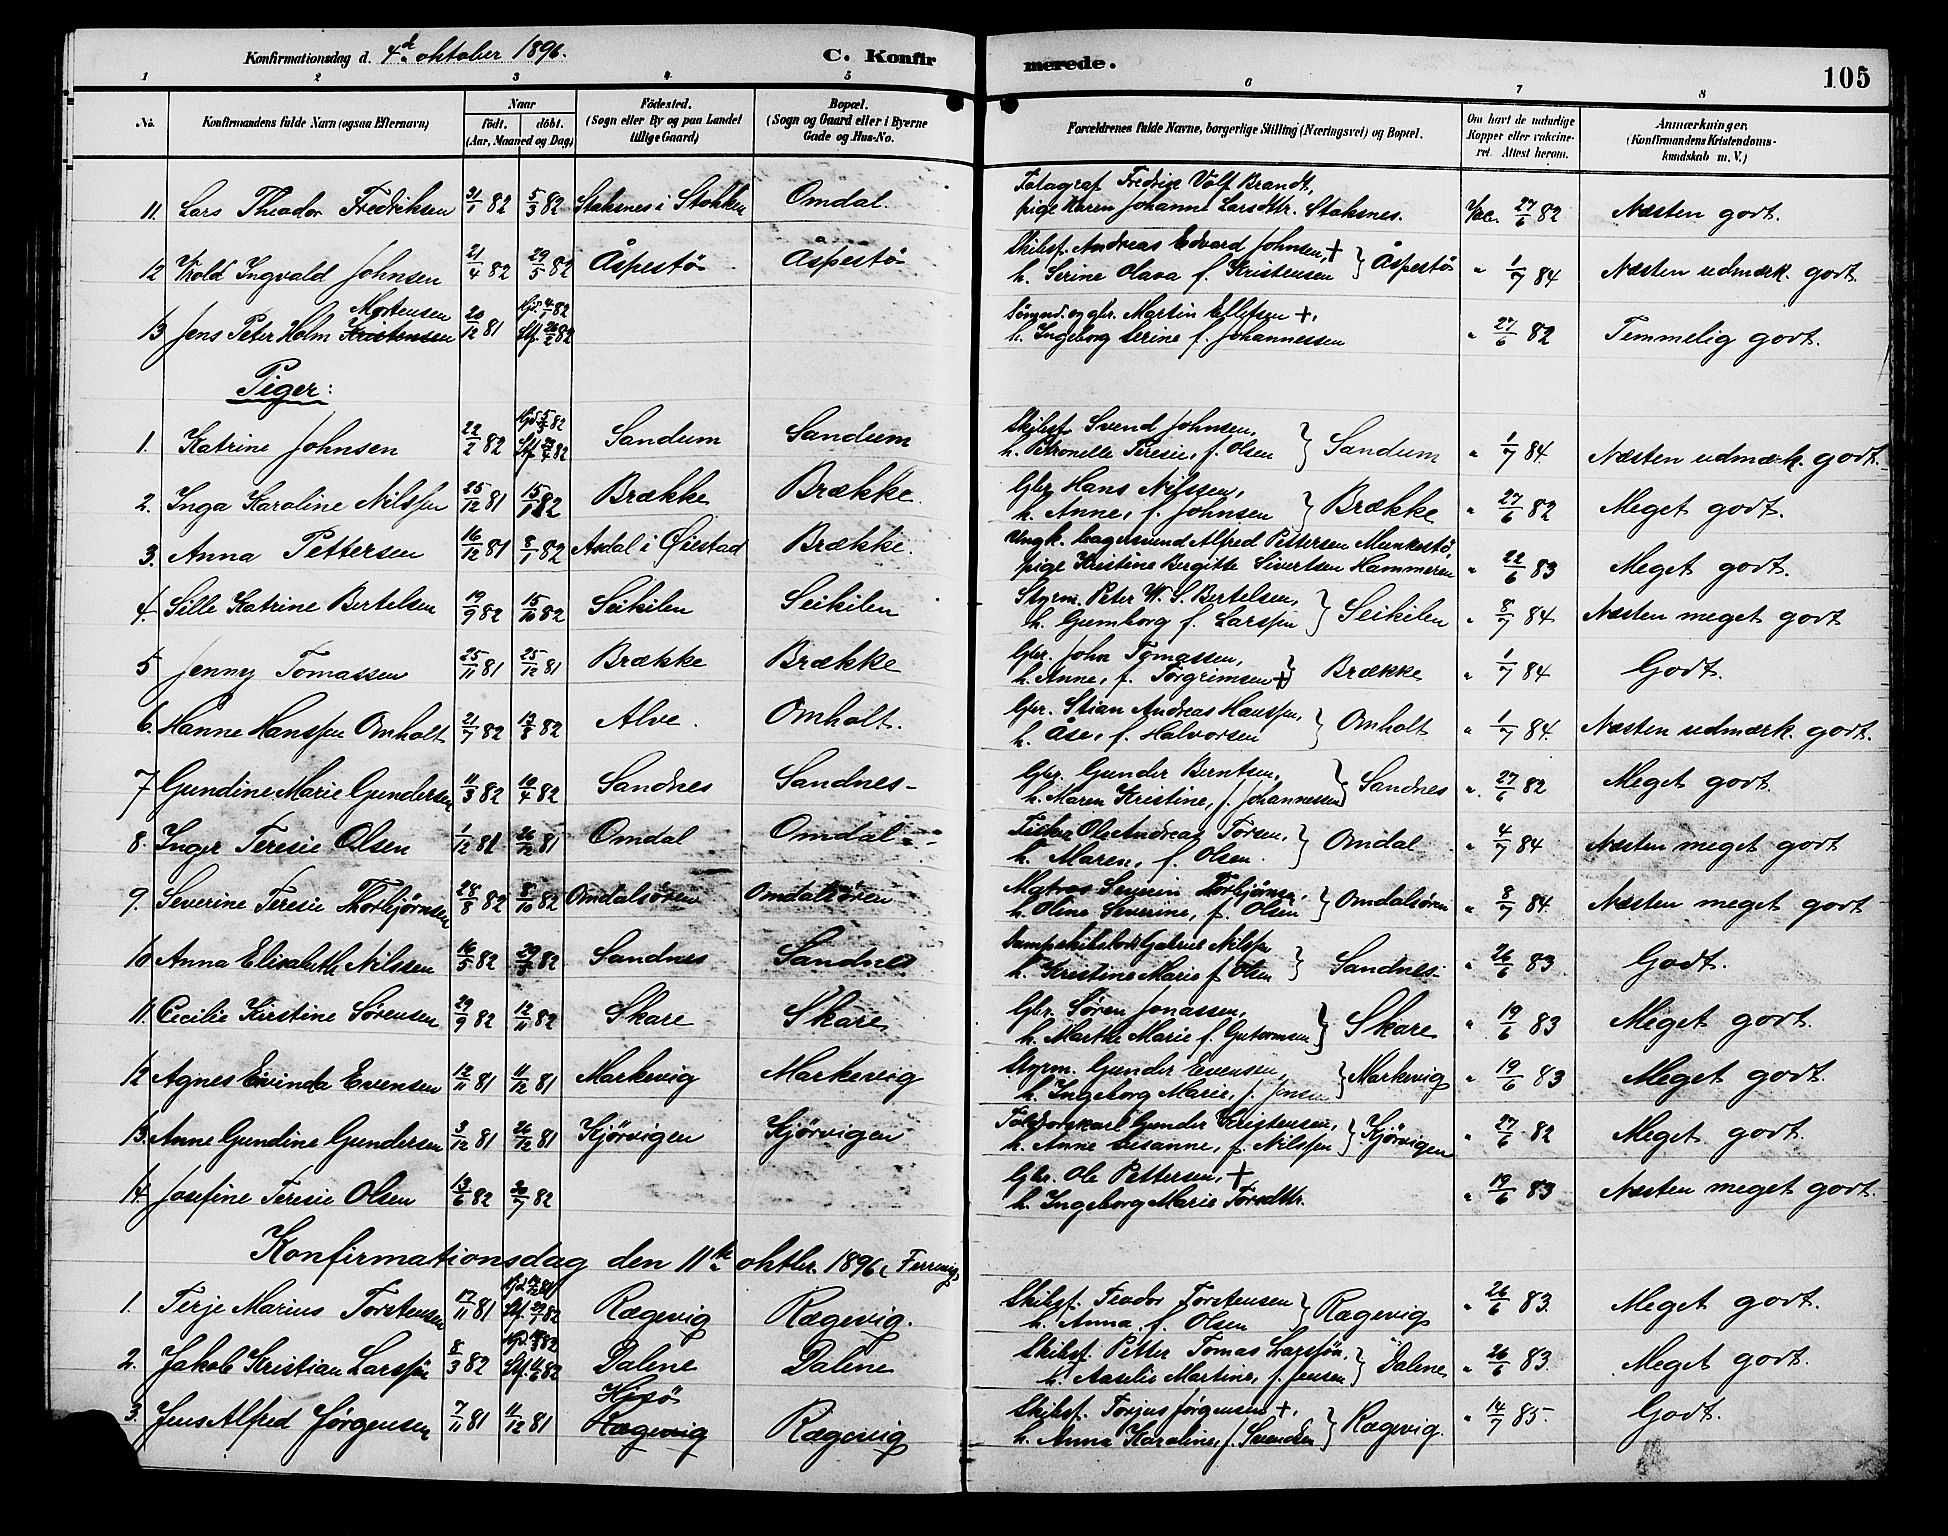 Konfirmationsdag d. 4d oktober 1896.
C. Konfirmerede.
105
1 2 3 4 5 6 7 8
No.
Konfirmandens fulde Navn (ogsaa Efternavn)
Naar
födt. döbt.
(Aar, Maaned og Dag)
Födested.
(Sogn eller By og paa Landet tillige Gaard)
Bopæl.
(Sogn og Gaard eller i Byerne Gade og Hus-No.
Forældrenes fulde Navne, borgerlige Stilling (Næringsvei) og Bopæl.
Om havt de naturlige Kopper eller vakcineret. Attest herom.
Anmærkninger.
(Konfirmandens Kristendomskundskab m. V.)
11. Lars Theodor Fredriksen 21/1 82 5/3 82 Staksnes i Stokken Omdal. Fotograf Fredrik Volf Brandt, pige Karen Johanne Larsdtr. Staksnes. Vac. 27/6 82 Næsten godt.
12 Ingvald Johnsen 21/4 82 29/5 82 Åspestö Åspestö Skibsf. Andreas Edvard Johnsen, + h. Serine Olava f. Kristensen } Åspestö " 1/7 84 Næsten udmærk. godt.
13 Jens Peter Holm Kristensen Mortensen 20/12 81 Hjd. 4/1 82 Stf. 26/2 82 Sömand og gbr. Martin Ellefsen +, h. Ingeborg Serine f. Johannessen " 27/6 82 Temmelig godt.
Piger:
1. Katrine Johnsen 22/2 82 Hjd. 5/3 82 Stf. 82 Sandum Sandum Skibsf. Svend Johnsen, h. Petronelle Teresie, f. Olsen } Sandum " 1/7 84 Næsten udmærk. godt.
2. Inga Karoline Nilssen 25/12 81 15/1 82 Brække Brække. Gbr. Hans Nilssen, h. Anne, f. Johnsen } Brække " 27/6 82 Meget godt.
3. Anna Pettersen 16/12 81 8/1 82 Asdal i Øiestad Brække. Ungk. Alfred Pettersen Munkestö, pige Kristine Bergitte Sivertsen Hammeren " 22/6 83 Meget godt.
4. Sille Katrine Bertelsen 19/9 82 15/10 82 Seikilen Seikilen Styrm. Peter W. S. Bertelsen, h. Gumborg f. Larssen } Seikilen " 8/7 84 Næsten meget godt
5 Jenny Tomassen 25/11 81 25/12 81 Brække Brække Gbr. John Tomassen, h. Anne, f. Torgrimsen + } Brække " 1/7 84 Godt.
6. Hanne Hanssen Omholt 21/7 82 13/8 82 Alve. Omholt. Gbr. Stian Andreas Hanssen, h. Åse, f. Halvorsen } Omholt " 1/7 84 Næsten udmærk. godt.
7 Gundine Marie Gundersen 11/3 82 10/4 82 Sandnes Sandnes Gbr. Gunder Berntsen, h. Maren Kristine, f. Johannessen } Sandnes " 27/6 82 Meget godt.
8. Inger Teresie Olsen 1/12 81 26/12 81 Omdal Omdal Fisker Ole Andreas Torsen, h. Maren, f. Olsen. } Omdal " 4/7 84 Næsten meget godt
9. Severine Teresie Thorbjörnsen 28/8 82 8/10 82 Omdalsören Omdalsören Matros Severin Torbjörnsen, h. Oline Severine, f. Olsen } Omdalsören " 8/7 84 Næsten meget godt
10 Anna Elisabeth Nilssen 16/5 82 29/5 82 Sandnes Sandnes Gabriel Nilssen h. Kristine Marie f. Olsen } Sandnes " 26/6 83 Godt.
11. Cecilie Kirstine Sörensen 29/9 82 12/11 82 Skare Skare Gbr. Sören Jonassen, h. Marthe Marie f. Gutormsen } Skare " 19/6 83 Meget godt.
12 Agnes Eivinda Evensen 12/11 81 11/12 81 Markevig Markevig Styrm. Gunder Evensen, h. Ingeborg Marie, f. Jensen } Markevig " 19/6 83 Meget godt.
13. Anne Gundine Gundersen 3/12 81 26/12 81 Kjörvigen Kjörvigen Gunder Kristensen, h. Anne Susanne, f. Nilssen } Kjörvigen " 27/6 82 Meget godt.
14. Josefine Teresie Olsen 13/6 82 30/7 82 Gbr. Ole Pettersen, + h. Ingeborg Marie Torsdtr. " 19/6 83 Næsten meget godt.
Konfirmationsdag den 11te oktbr. 1896
1. Terje Marius Torstensen 17/11 81 Hjd. 81 Stf. 82 Rægevig Rægevig. Skibsf. Teodor Torstensen h. Anna, f. Olsen } Rægevig " 26/6 83. Meget godt.
2. Jakob Kristian Larssön 8/3 82 Hjd. 82 Stf. 4/6 82 Dalene Dalene Skibsf. Petter Tomas Larssön, h. Aaselie Martine, f. Jensen } Dalene " 26/6 83. Meget godt.
3. Jens Alfred Jörgensen 7/11 81 11/12 81 Hisö Rægevig Rægevig Skibsf. Torjus Jörgensen +, h. Anna Karoline, f. Svendsen } Rægevig. " 14/7 85. Godt.